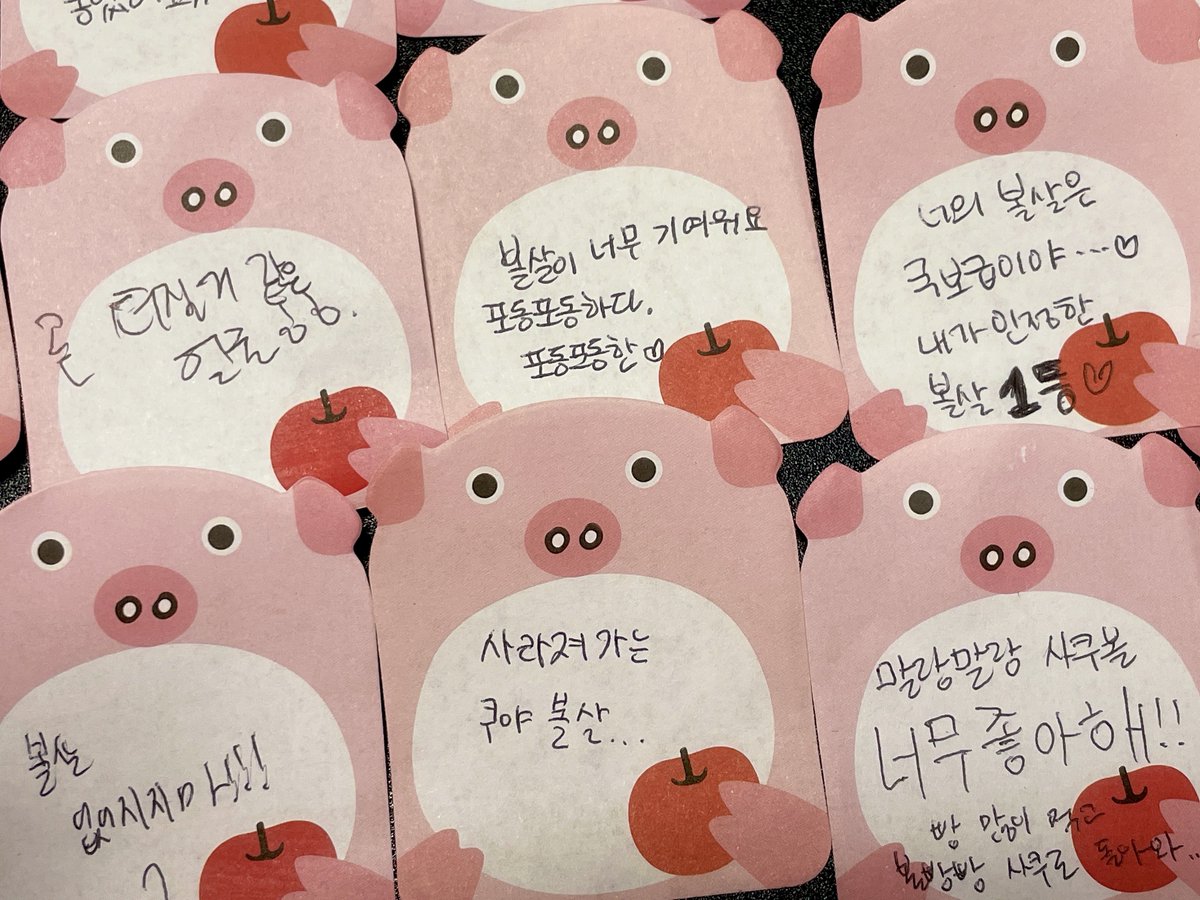 터질거 같은
얼굴
볼살이 너무 기여워요
포동포동하다.
포동포동한♡
너의 볼살은
국보급이야…♡
내가 인정한
볼살 1등♡
볼살
없어지지마!!!
사라져가는
쿠야 볼살...
말랑말랑 사쿠볼
너무 좋아해!!
빵 많이 먹고
볼빵빵 사쿠로 돌아와..